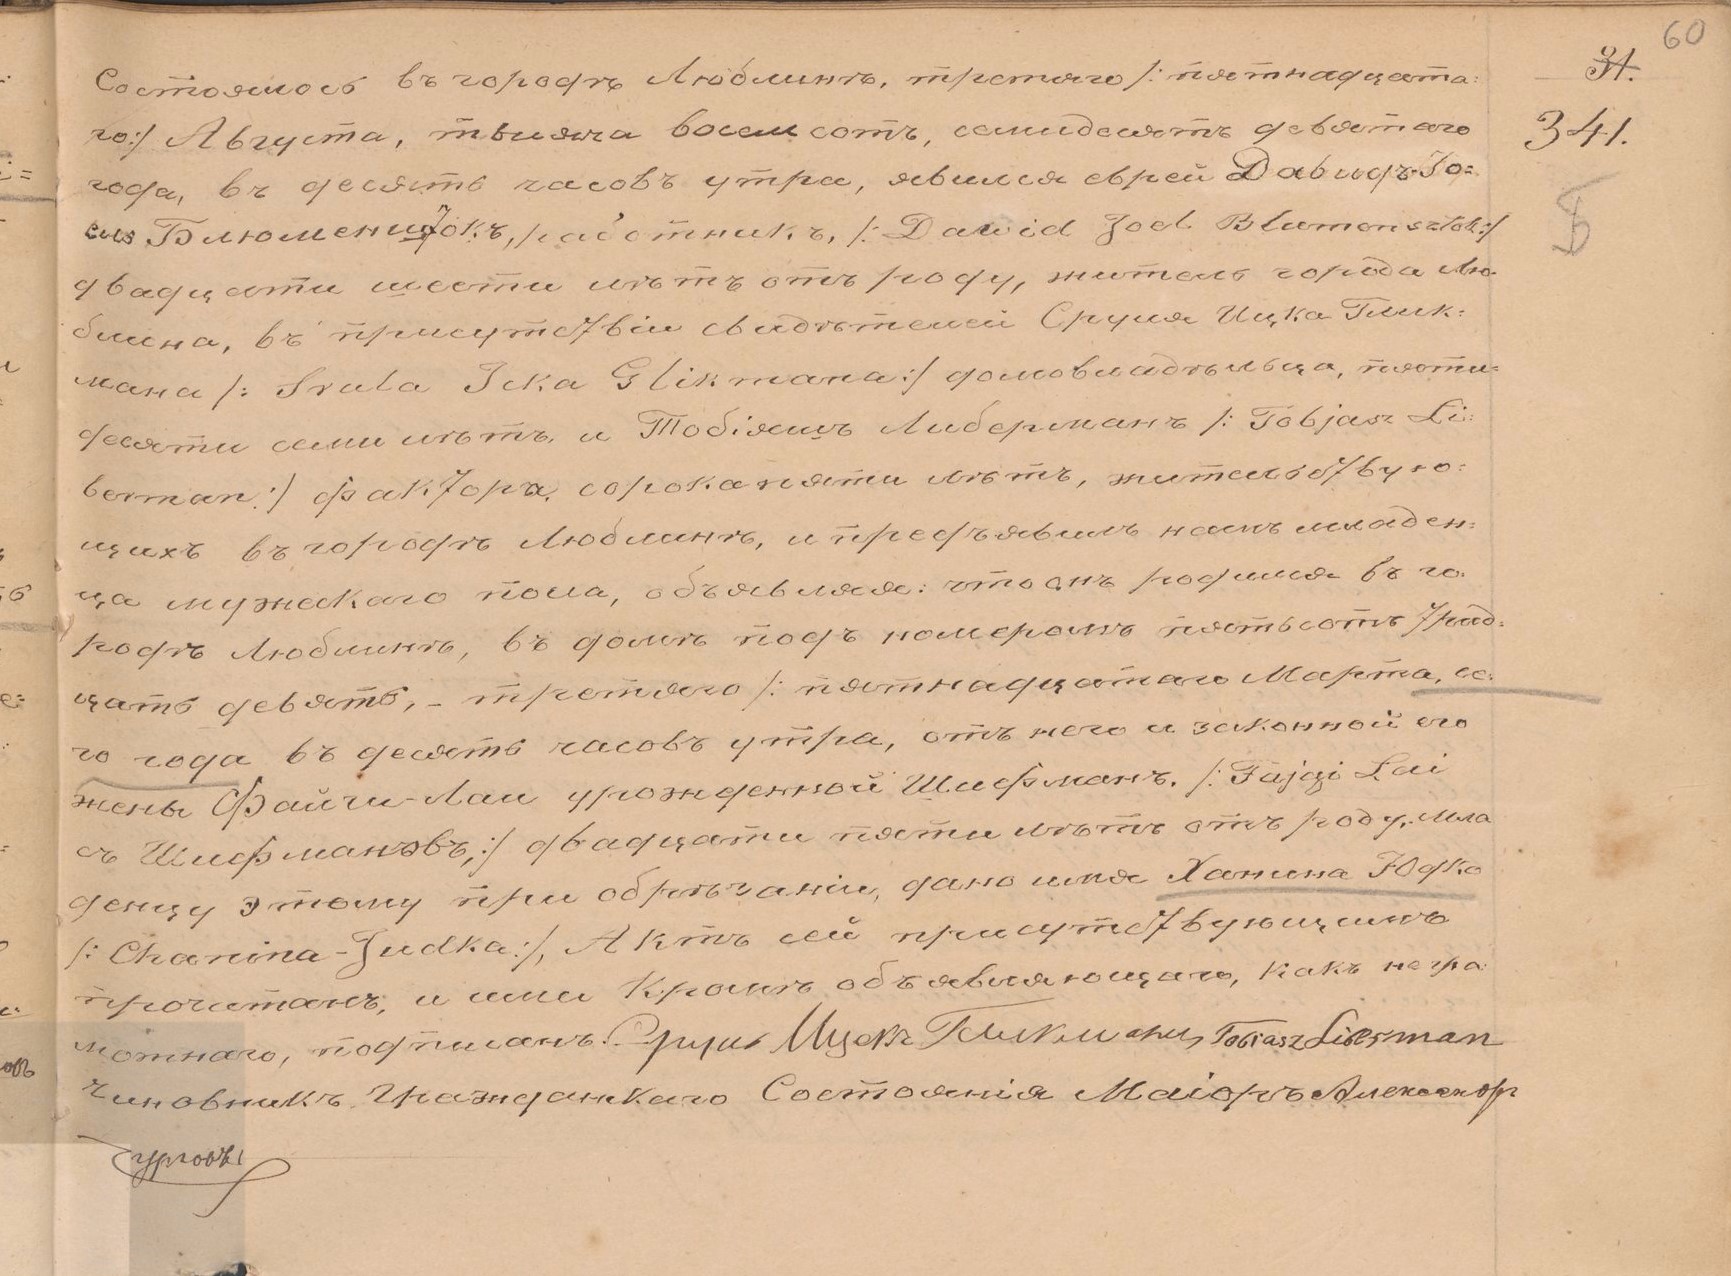 60
31.
341.
Состоялось въ городѣ Люблинѣ, третяго /: пятнадцата:
го:/ Августа, тысяча восемсотъ, семидесятъ девятаго
года, въ десять часовъ утра, явился еврей Давидъ-Іо:
сль Блюменштокъ, работникъ, /: Dawid Joel Blumensztok:/
двадцати шести лѣтъ отъ роду, житель города Лю-
блина, въ присутствіи свидѣтелей Сруля Ицка Глик:
мана /: Srula Icka Glikmana:/ домовладѣльца, пяти:
десяти семи лѣтъ, и Тобіяшъ Либерманъ /: Tobjasz Li:
berman:/ фактора, сорока пяти лѣтъ, жительствую:
щихъ въ городѣ Люблинѣ, и предъявилъ намъ младен:
ца мужескаго пола, объявляя: что онъ родился въ го:
родѣ Люблинѣ, въ домѣ подъ номеромъ пятьсотъ трид:
цать девять, - третяго /: пятнадцатаго Марта, се:
го года въ десять часовъ утра, отъ него и законной его
жены Файги-Лаи урожденной Шифманъ. /: Fajgi Lai
съ Шифмановъ,:/ двадцати пяти лѣтъ отъ роду. Мла
денцу этому при обрѣзаніи, дано имя Ханина Юдка
/: Chanina-Judka:/, Актъ сей присутствующимъ
прочитанъ, и ими кромѣ объявляющаго, какъ негра
мотнаго, подписанъ. Сруль Ицекъ Гликманъ, Tobiasz Liberman
Чиновникъ Гражданскаго Состоянія Маіоръ Александр